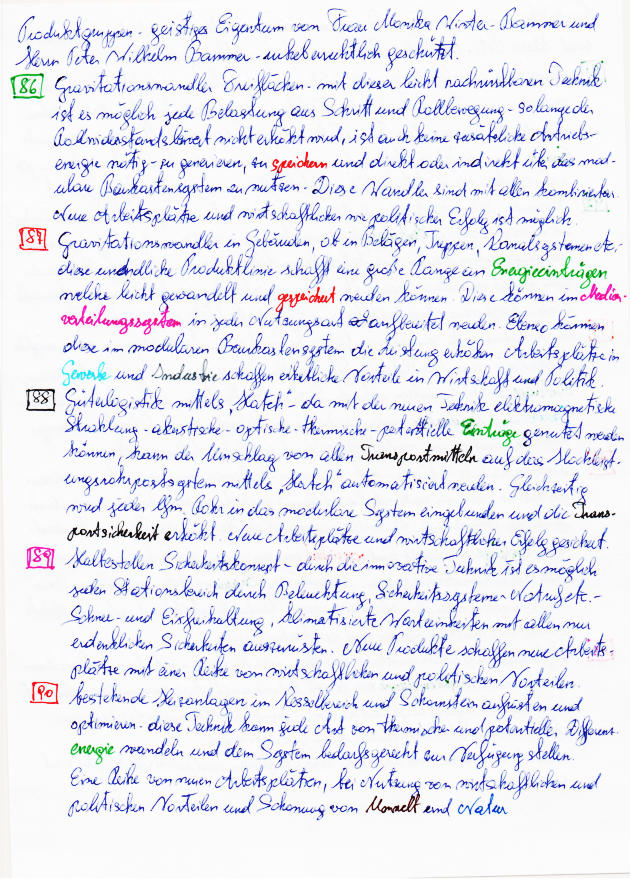 Produktgruppen - geistiges Eigentum von Frau Monika Winter-Bammer und
Herrn Peter Wilhelm Bammer - urheberrechtlich geschützt.
86 Gravitationswandler Freiflächen - mit dieser leicht nachrüstbaren Technik
ist es möglich jede Belastung aus Schritt und Rollbewegung - solange der
Rollwiderstand nicht erhöht wird, ist auch keine zusätzliche Antriebs-
energie nötig - zu generieren, zu speichern und direkt oder indirekt über das mod-
ulare Baukastensystem zu nutzen - Diese Wandler sind mit allen kombinierbar.
Neue Arbeitsplätze und wirtschaftlicher wie politischer Erfolg ist möglich.
87 Gravitationswandler in Gebäuden, ob in Belägen, Treppen, Kanalsystemen etc.
diese unendliche Produktlinie schafft eine große Range an Energieeinträgen
welche leicht gewandelt und gespeichert werden können. Diese können im Medien-
verteilungssystem in jeder Nutzungsart aufbereitet werden. Ebenso können
diese im modularen Baukastensystem die Leistung erhöhen Arbeitsplätze in
Gewerbe und Industrie schaffen erhebliche Vorteile in Wirtschaft und Politik.
88 Güterlogistik mittels "Hatch" - da mit der neuen Technik elektromagnetische
Strahlung - akustische - optische - thermische - potentielle Einträge genutzt werden
können, kann der Umschlag von allen Transportmitteln auf das Hochleist-
ungsrohrpostsystem mittels "Hatch" automatisiert werden. Gleichzeitig
wird jeder lfm. Rohr in das modulare System eingebunden und die Trans-
portsicherheit erhöht. Neue Arbeitsplätze und wirtschaftlicher Erfolg gesichert.
89 Haltestellen Sicherheitskonzept - durch die innovative Technik ist es möglich
jeden Stationsbereich durch Beleuchtung, Sicherheitssysteme - Notruf etc. -
Schnee- und Eisfreihaltung, klimatisierte Warteeinheiten mit allen nur
erdenklichen Sicherheiten auszurüsten. Neue Produkte schaffen neue Arbeits-
plätze mit einer Reihe von wirtschaftlichen und politischen Vorteilen.
90 bestehende Heizanlagen im Kesselbereich und Schornstein aufrüsten und
optimieren - diese Technik kann jede Art von thermischer und potentieller Differenz-
energie wandeln und dem System bedarfsgerecht zur Verfügung stellen.
Eine Reihe von neuen Arbeitsplätzen, bei Nutzung von wirtschaftlichen und
politischen Vorteilen und Schonung von Umwelt und Natur